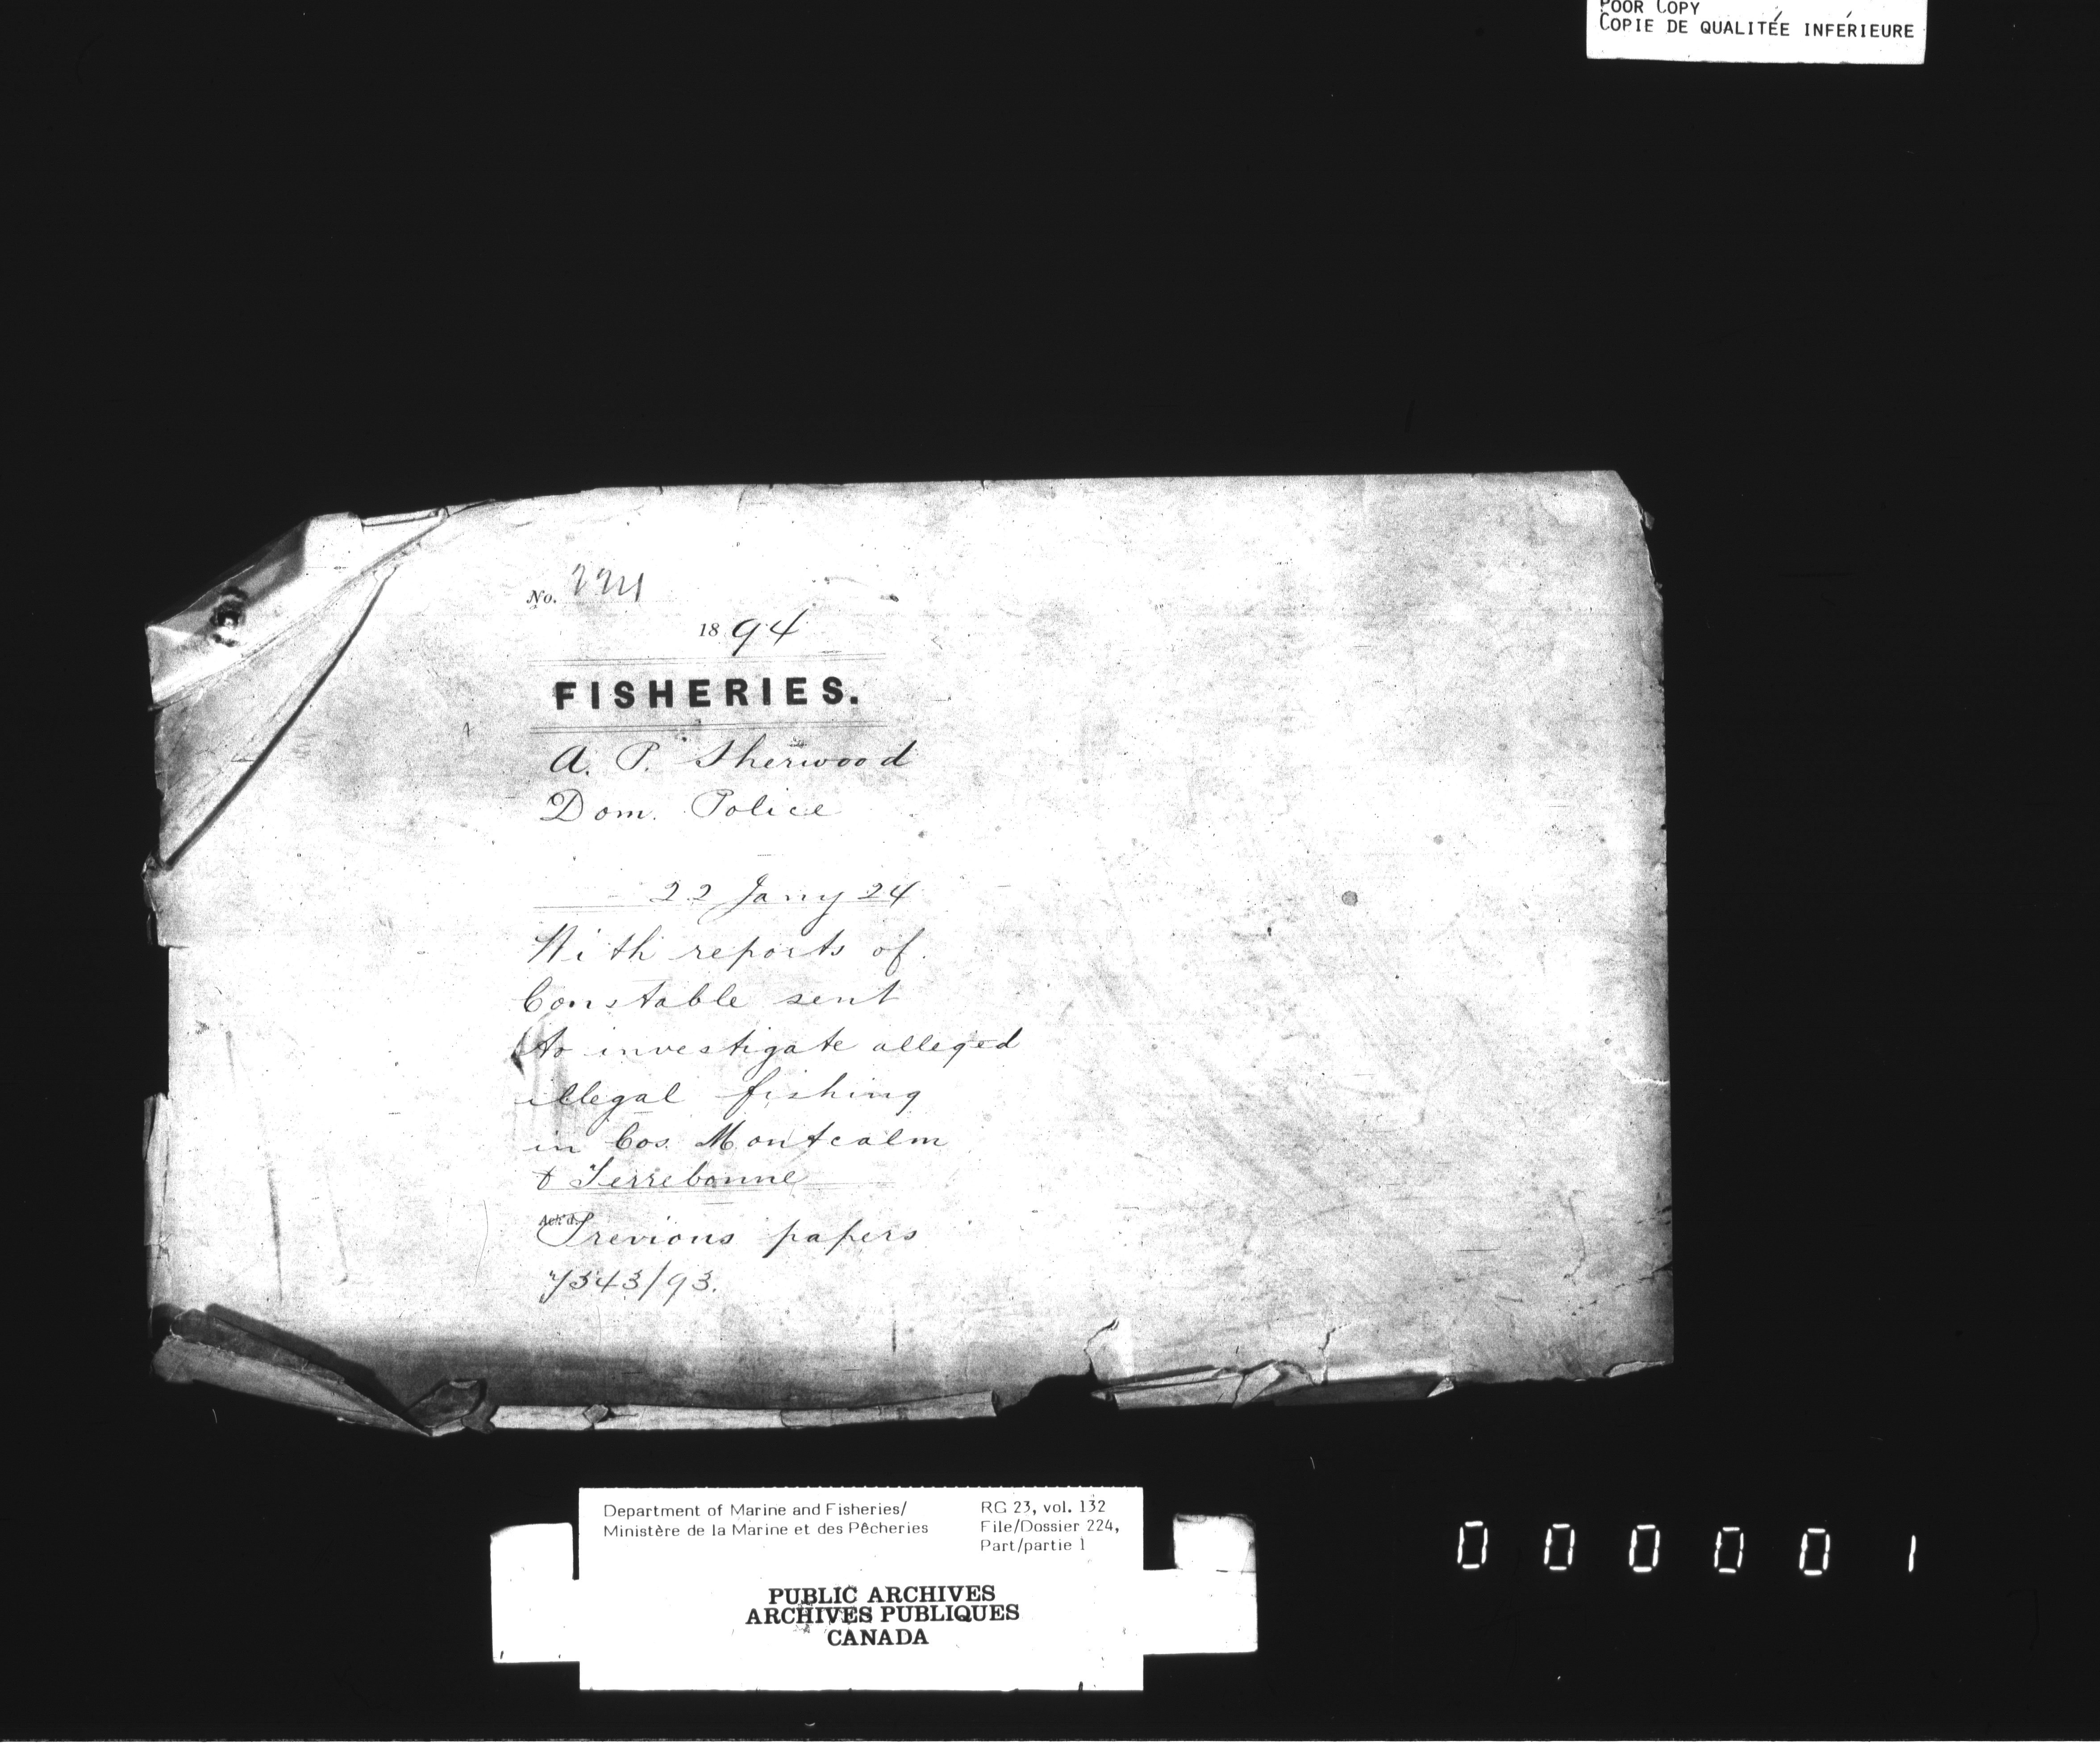 POOR COPY
COPIE DE QUALITÉE INFÉRIEURE
No. 224
1894
FISHERIES.
A. P. Sherwood
Dom. Police
22 Jany 24
With reports of
Constable sent
to investigate alleged
illegal fishing
in Cos. Montcalm
& Terrebonne
Ack'd.
Previous papers
7343/93.
Department of Marine and Fisheries/
Ministère de la Marine et des Pêcheries
RG 23, vol. 132
File/Dossier 224,
Part/partie 1
PUBLIC ARCHIVES
ARCHIVES PUBLIQUES
CANADA
000001